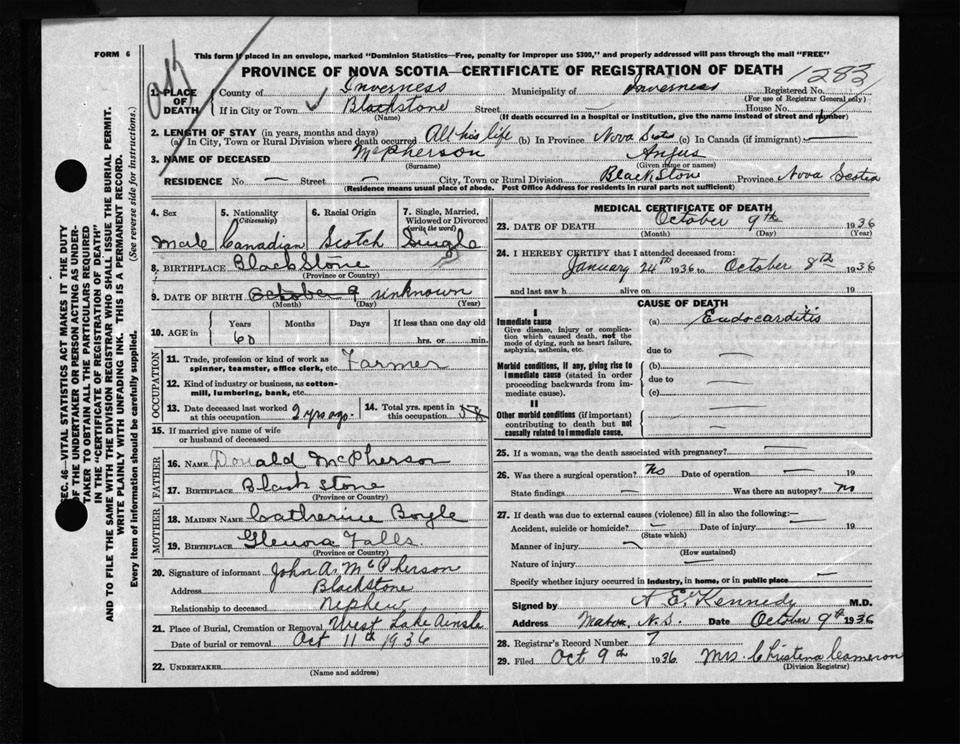 FORM 6
This form if placed in an envelope, marked "Dominion Statistics—Free, penalty for improper use $300," and properly addressed will pass through the mail "FREE"
PROVINCE OF NOVA SCOTIA—CERTIFICATE OF REGISTRATION OF DEATH
1283
1. PLACE OF DEATH
County of Inverness Municipality of Inverness Registered No.
(For use of Registrar General only)
If in City or Town Blackstone Street House No.
(Name) (If death occurred in a hospital or institution, give the name instead of street and number)
2. LENGTH OF STAY (in years, months and days)
(a) In City, Town or Rural Division where death occurred All his life (b) In Province Nova Scotia (c) In Canada (if immigrant)
3. NAME OF DECEASED McPherson Angus
(Surname) (Given name or names)
RESIDENCE No. — Street — City, Town or Rural Division BlackSton Province Nova Scotia
(Residence means usual place of abode. Post Office Address for residents in rural parts not sufficient)
4. Sex 5. Nationality (Citizenship) 6. Racial Origin 7. Single, Married, Widowed or Divorced (write the word)
Male Canadian Scotch Single
8. BIRTHPLACE BlackStone
(Province or Country)
9. DATE OF BIRTH October 9 unknown
(Month) (Day) (Year)
10. AGE in Years Months Days If less than one day old
60 hrs. or min.
OCCUPATION
11. Trade, profession or kind of work as spinner, teamster, office clerk, etc. Farmer
12. Kind of industry or business, as cotton-mill, lumbering, bank, etc.
13. Date deceased last worked at this occupation 2 yrs ago. 14. Total yrs. spent in this occupation
15. If married give name of wife or husband of deceased
FATHER
16. NAME Donald McPherson
17. BIRTHPLACE Black Stone
(Province or Country)
MOTHER
18. MAIDEN NAME Catherine Boyle
19. BIRTHPLACE Glenora Falls.
(Province or Country)
20. Signature of informant John A. McPherson
Address Blackstone
Relationship to deceased nephew
21. Place of Burial, Cremation or Removal West Lake Ainslie
Date of burial or removal Oct 11th 1936
22. UNDERTAKER
(Name and address)
MEDICAL CERTIFICATE OF DEATH
23. DATE OF DEATH October 9th 1936
(Month) (Day) (Year)
24. I HEREBY CERTIFY that I attended deceased from:
January 24th 1936 to October 8th 1936
and last saw h alive on 19
CAUSE OF DEATH
I
Immediate cause (a) Endocarditis
Give disease, injury or complication which caused death, not the mode of dying, such as heart failure, asphyxia, asthenia, etc.
due to —
Morbid conditions, if any, giving rise to immediate cause (stated in order proceeding backwards from immediate cause).
(b) —
due to —
(c) —
II
Other morbid conditions (if important) contributing to death but not causally related to immediate cause.
25. If a woman, was the death associated with pregnancy? —
26. Was there a surgical operation? No Date of operation — 19
State findings — Was there an autopsy? No
27. If death was due to external causes (violence) fill in also the following:—
Accident, suicide or homicide? — Date of injury — 19
(State which)
Manner of injury
(How sustained)
Nature of injury —
Specify whether injury occurred in industry, in home, or in public place —
Signed by A. E. Kennedy M.D.
Address Mabou, N.S. Date October 9th 1936
28. Registrar's Record Number 7
29. Filed Oct 9th 1936. Mrs. Christena Cameron
(Division Registrar)
SEC. 46—VITAL STATISTICS ACT MAKES IT THE DUTY
OF THE UNDERTAKER OR PERSON ACTING AS UNDER-
TAKER TO OBTAIN ALL THE PARTICULARS REQUIRED
IN THE "CERTIFICATE OF REGISTRATION OF DEATH"
AND TO FILE THE SAME WITH THE DIVISION REGISTRAR WHO SHALL ISSUE THE BURIAL PERMIT.
WRITE PLAINLY WITH UNFADING INK. THIS IS A PERMANENT RECORD.
Every item of information should be carefully supplied. (See reverse side for instructions.)